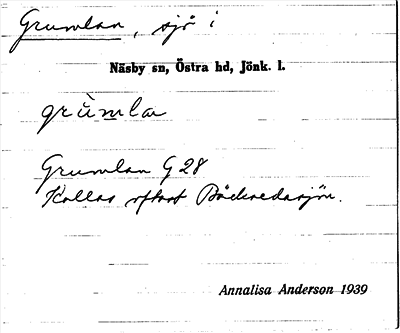 Grumlan, sjö i
Näsby sn, Östra hd, Jönk. l.
grùmla
Grumlan G 28
Kallas oftast Bäckvedasjön.
Annalisa Anderson 1939